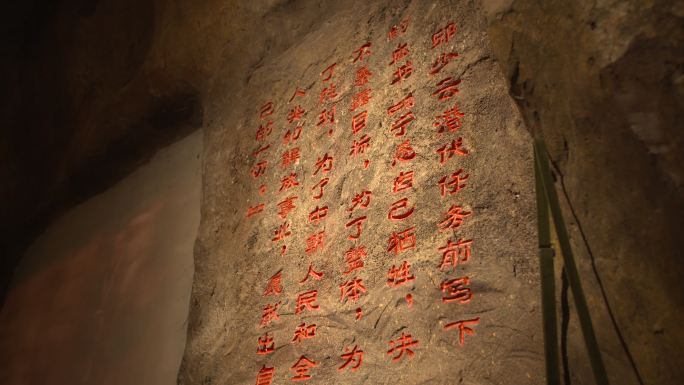 邱少云潜伏任务前写下
的血书：“宁愿自己牺牲，决
不暴露目标，为了整体，为
了胜利，为了中朝人民和全
人类的解放事业，愿献出自
己的一切。”